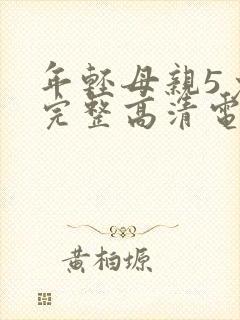 年輕母親5
完整高清電
黃柏塬